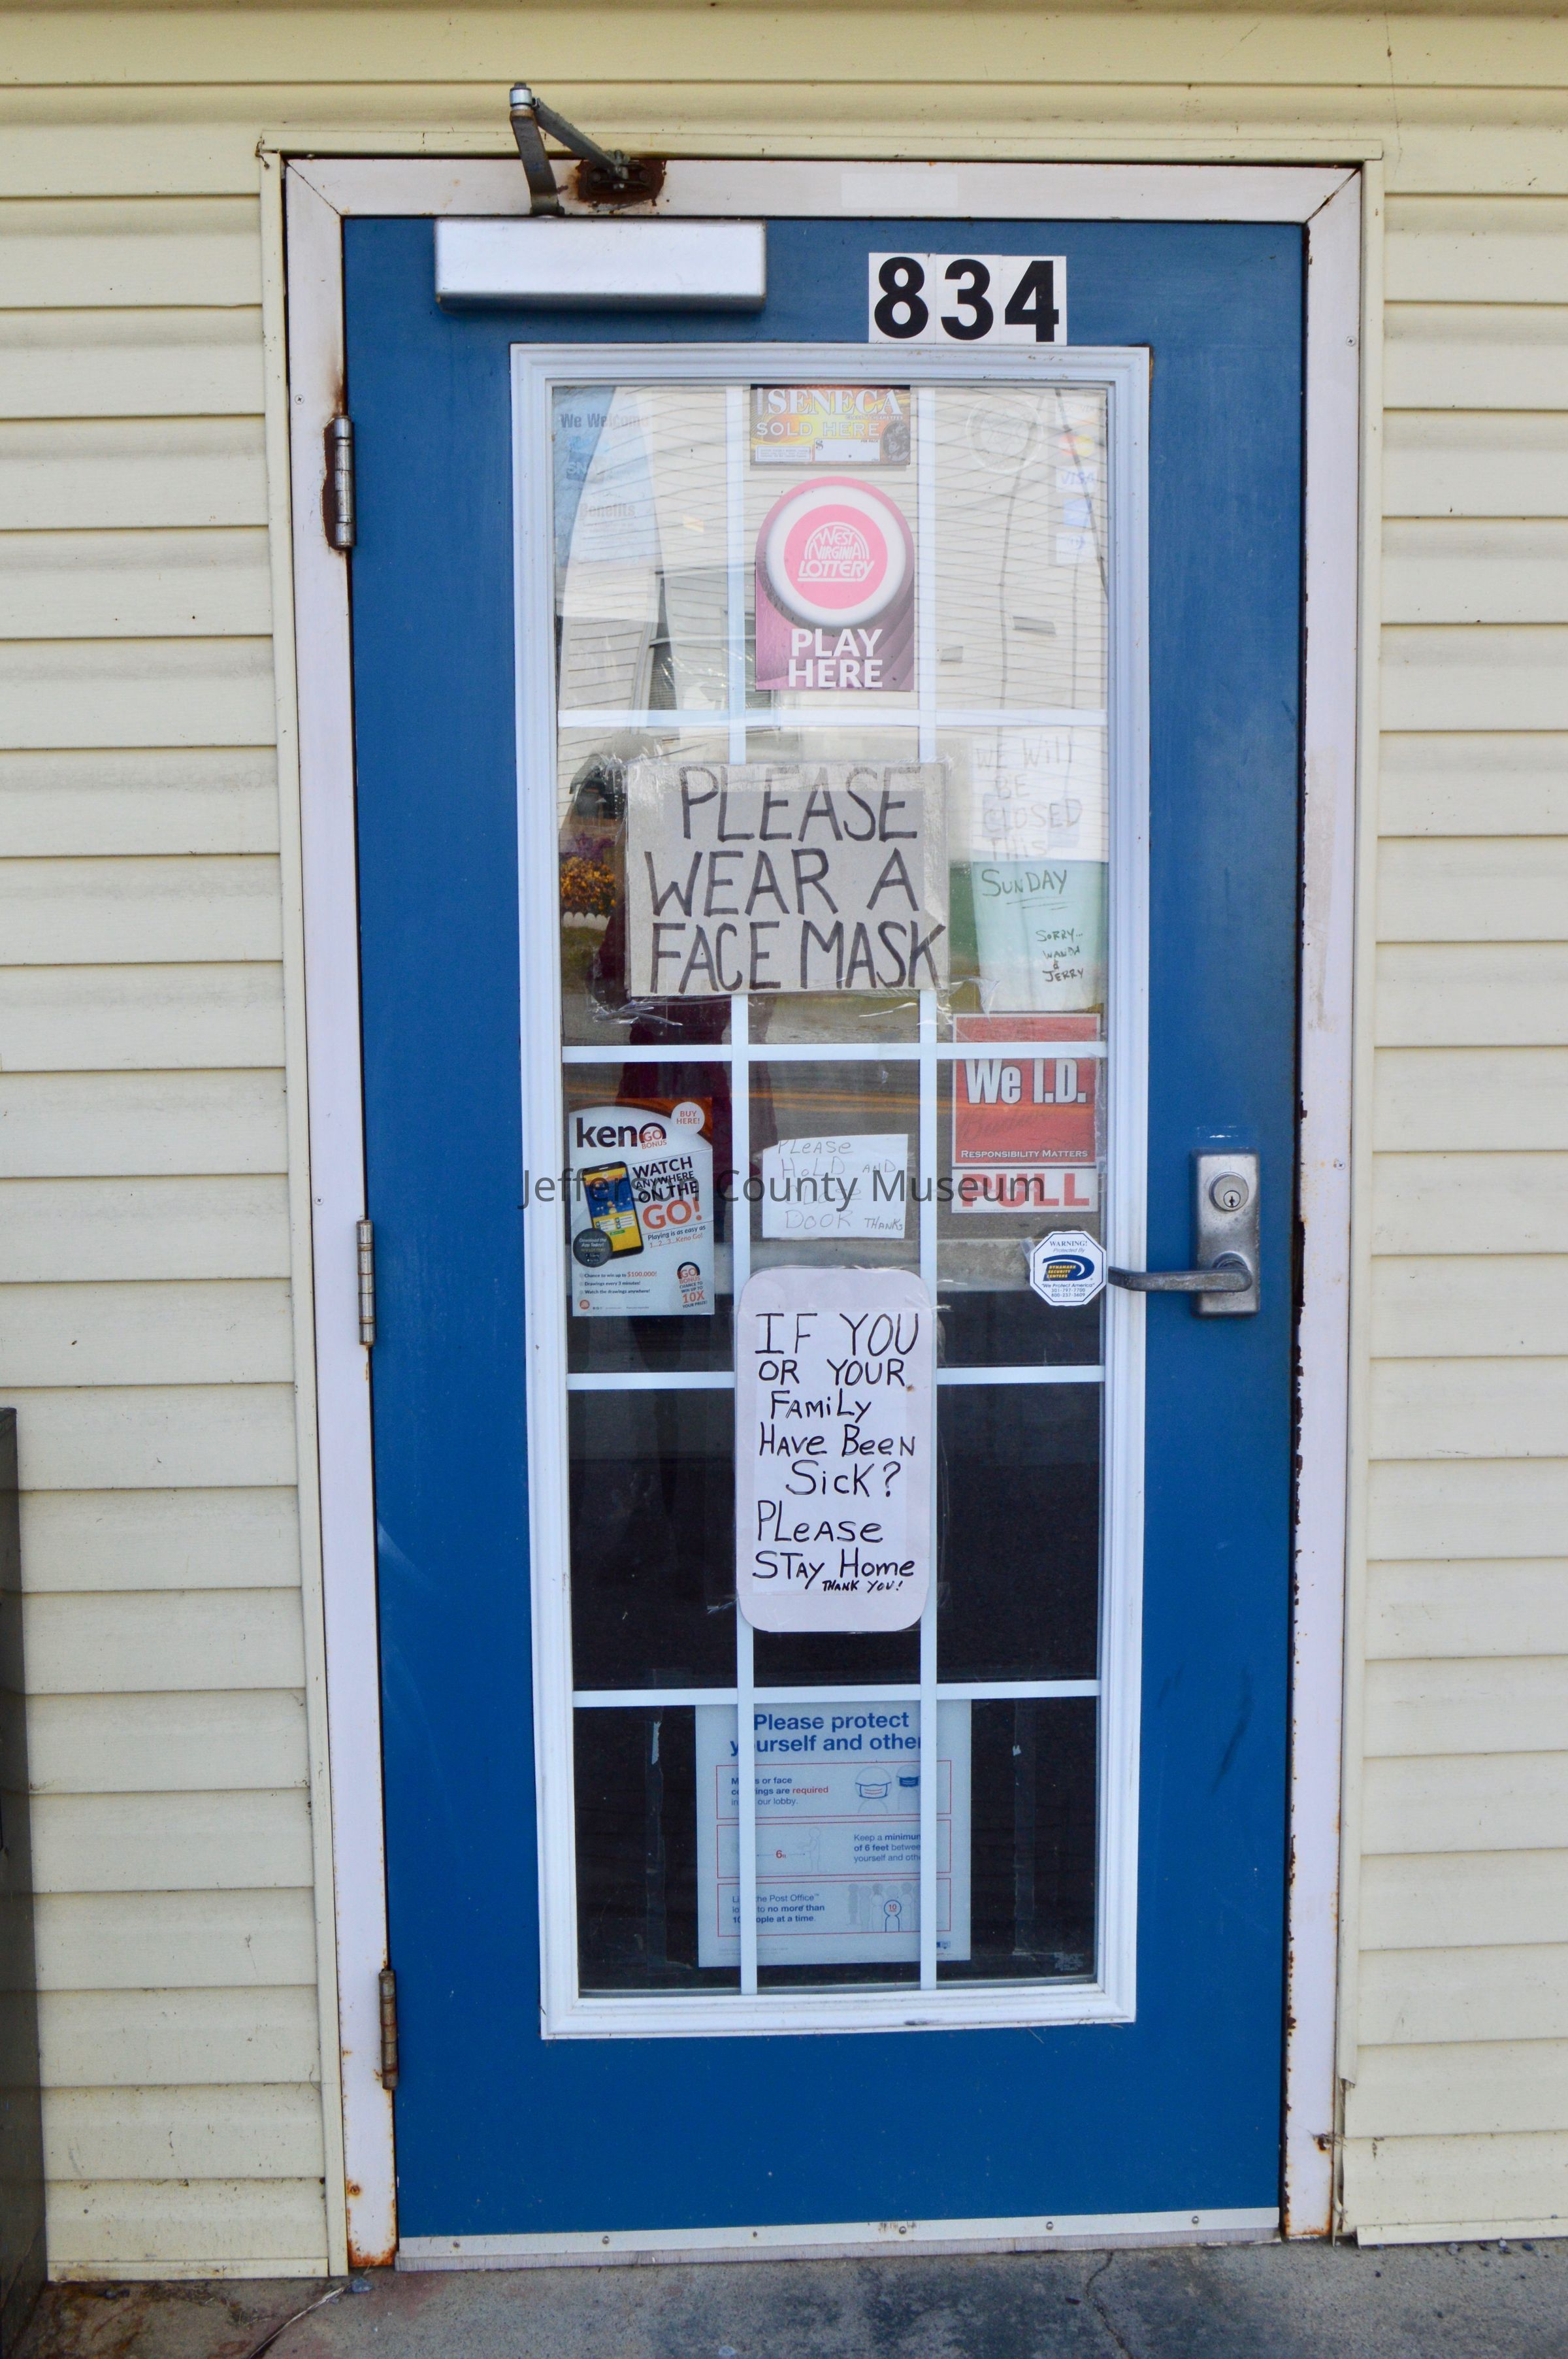 834
We Welcome
SNAP
Benefits
SENECA
SOLD HERE
VISA
WEST
VIRGINIA
LOTTERY
PLAY
HERE
PLEASE
WEAR A
FACE MASK
WE Will
BE
CLOSED
THIS
SUNDAY
SORRY-
WANDA
&
JERRY
We I.D.
RESPONSIBILITY MATTERS
PULL
BUY
HERE!
keno
GO
BONUS
WATCH
ANYWHERE
ON THE
GO!
Playing is as easy as
1...2...3...Keno Go!
Chance to win up to $100,000!
Drawings every 5 minutes!
Watch the drawings anywhere!
GO
BONUS
CHANCE TO
WIN UP TO
10X
YOUR PRIZE!
PLEASE
HOLD AND
DOOR THANKS
Jefferson County Museum
WARNING!
Protected By
DYNAMARK
SECURITY
CENTERS
"We Protect America"
IF YOU
OR YOUR
FAMiLY
HAVe BeeN
SicK?
PLeASe
STAY Home
THANK YOU!
Please protect
yourself and other
or face
are required
our lobby.
6
Keep a minimum
of 6 feet between
yourself and
the Post Office™
to no more than
10 people at a time.
10